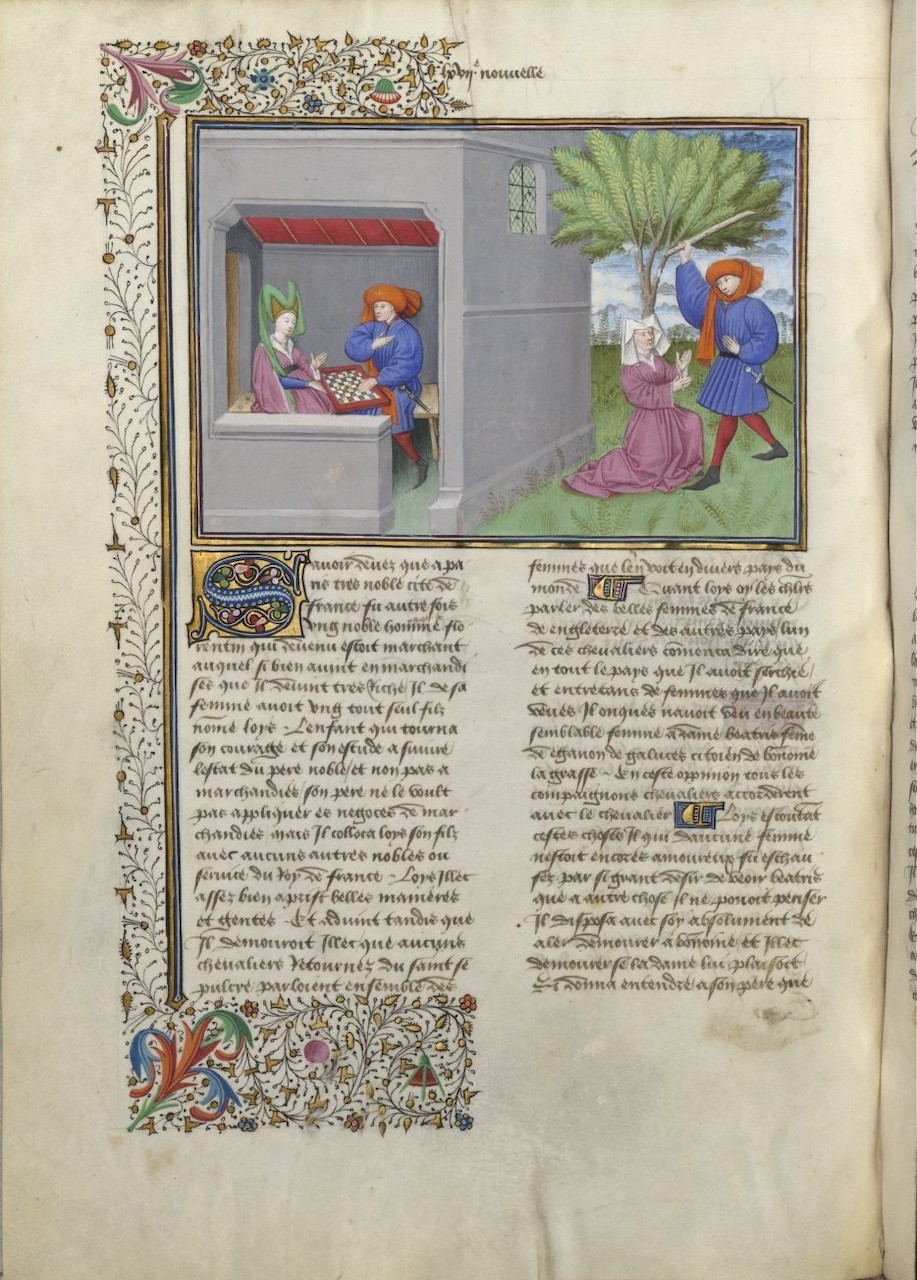 lxvij.e nouuelle
Sauoir deuez que a pa
ris tres noble cite de
france fu autre fois
vng noble homme flo
rentin qui deuenu estoit marchant
auquel si bien auint en marchandi
ses que Il deuint tres riche Il de sa
femme auoit vng tout seul filz
nomé loys . Lenfant qui tourna
son courage et son estude a suiure
lestat du pere noble et non pas a
marchandies son pere ne le voult
pas appliquer es negoces de mar
chandies mais Il colloca loys son filz
auec aucuns autres nobles ou
seruice du Roy de france . Loys Illec
assez bien aprist belles manieres
et gentes . Et aduint tandis que
Il demouroit Illec que aucuns
cheualiers Retournez du saint se
pulcre parloient ensemble des
femmes que len voit en diuers pays du
monde Quant loys oy les chlrs
parler des belles femmes de france
de engleterre et des autres pays lun
de ces cheualiers comenca dire que
en tout le pays que Il auoit serchie
et entretans de femmes que Il auoit
veues Il onques nauoit veu en beaute
semblable femme a dame beatrix feme
de eganon de galuces citoien de bonome
la grasse . En ceste oppinion tous les
compaignons cheualiers accorderent
auec le cheualier Loys escoutãt
cestes choses Il qui daucune femme
nestoit encores amoureux fu eschau
fez par si grant desir de veoir beatrix
que a autre chose Il ne pouoit penser
Il disposa auec soy absolument de
aler demourer a bonome et Illec
demourer se la dame lui plaisoit
Si donna entendre a son pere que